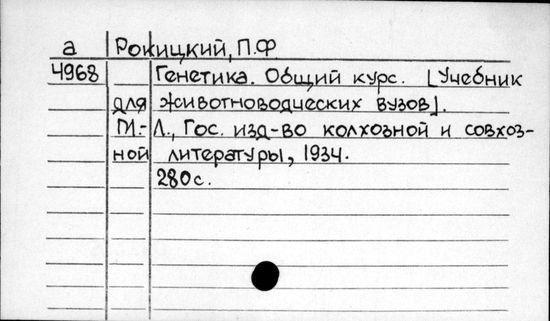 а Рокицкий, П.Ф
4968 Генетика. Общий курс. [Учебник
для животноводческих вузов].
М.-Л., Гос. изд-во колхозной и совхоз-
ной литературы, 1934.
280с.